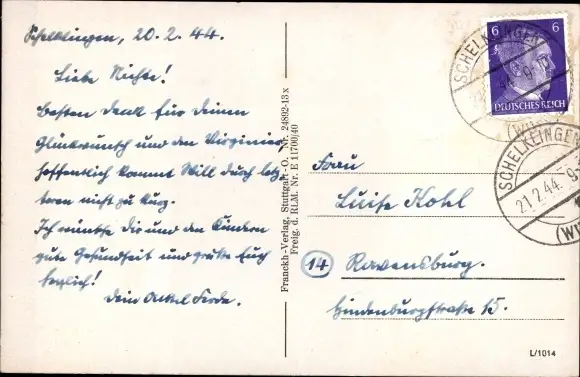 Schelklingen, 20.2.44.
Liebe Nichte!
Besten Dank für Deinen
Glückwunsch und den Virginier,
hoffentlich kommt Will durch letz-
teren nicht zu kurz.
Ich wünsche dir und den Kindern
gute Gesundheit und grüße Euch
herzlich!
Dein Onkel
Franckh-Verlag, Stuttgart-O. Nr. 24892-13x
Freig. d. RLM. Nr. E 11700/40
6 6
DEUTSCHES REICH
SCHELKLINGEN
SCHELKLINGEN
21.2.44.-9
Frau
Luise Kohl
14 Ravensburg.
Hindenburgstraße 15.
L/1014